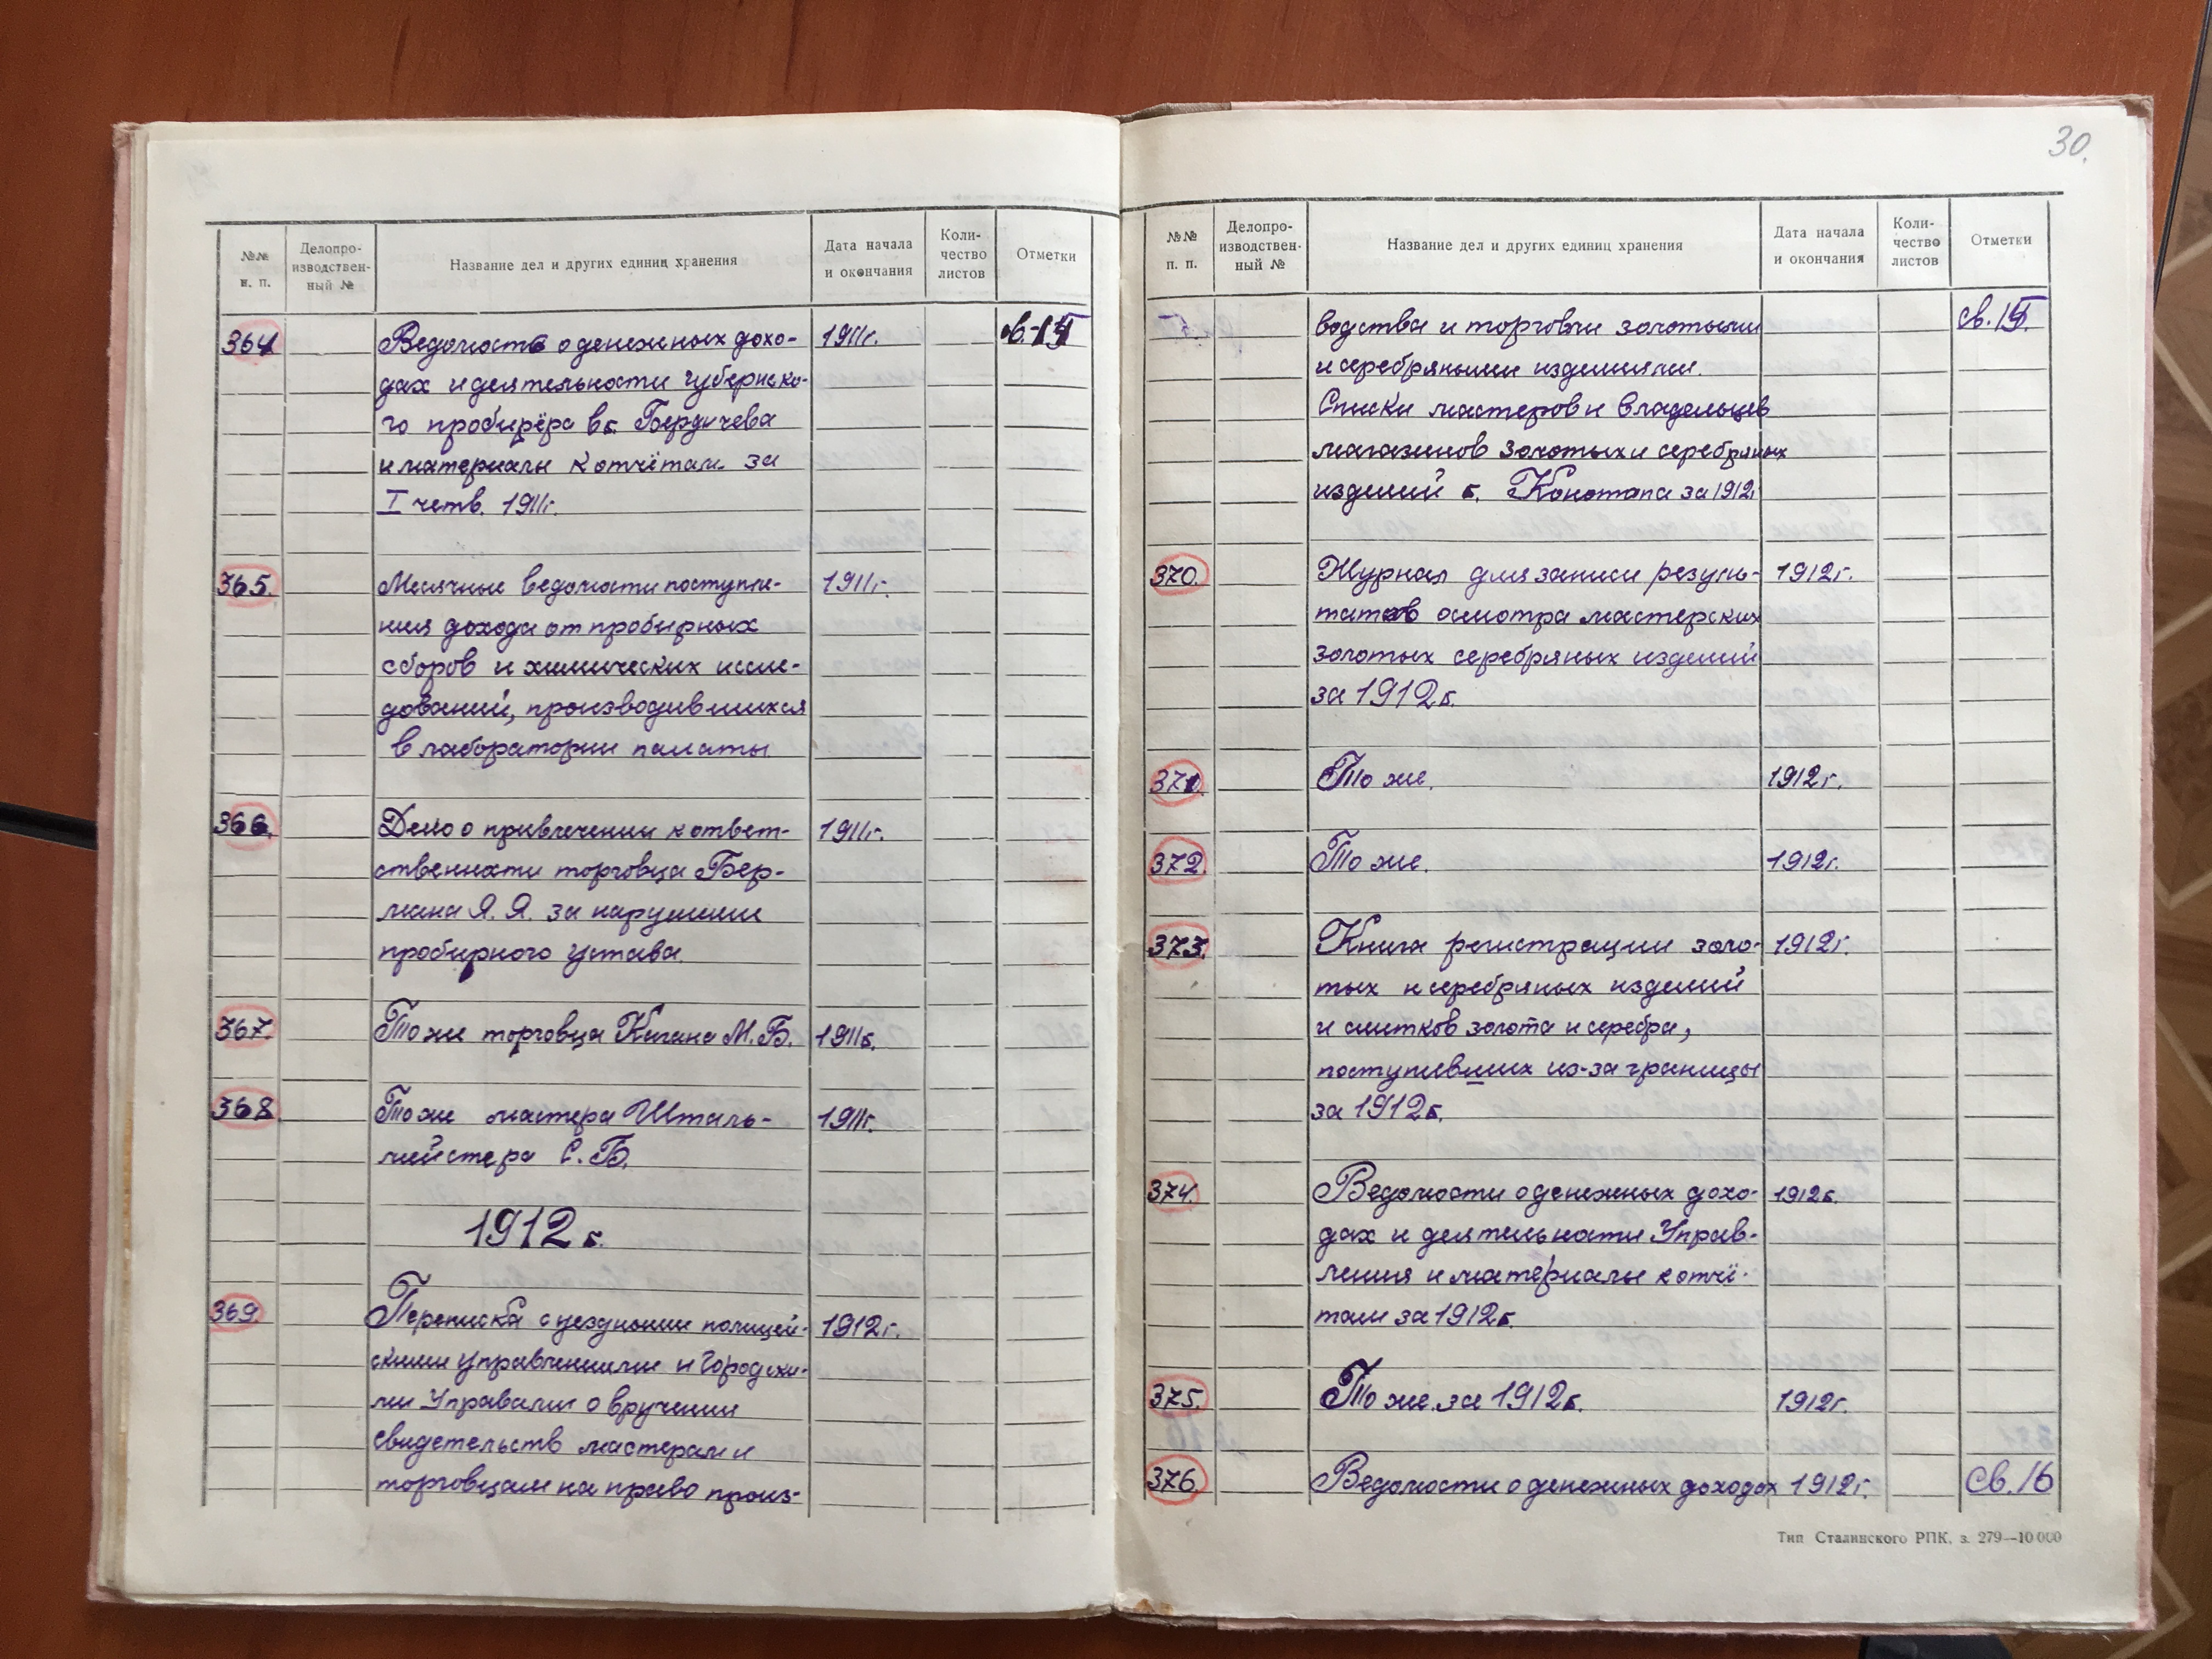 №№ п. п.
Делопро-
изводствен-
ный №
Название дел и других единиц хранения
Дата начала
и окончания
Коли-
чество
листов
Отметки
364 Ведомость о денежных дохо- 1911г.
дах и деятельности губернско-
го пробирёра в г. Бердичева
и материалы к отчётам за
I четв. 1911г.
365. Месячные ведомости поступле- 1911г.
ния дохода от пробирных
сборов и химических иссле-
дований, производившихся
в лаборатории палаты.
366. Дело о привлечении к ответ- 1911г.
ственности торговца Бер-
мана Я. Я. за нарушение
пробирного устава.
367. То же торговца Кагана М.Б. 1911г.
368. То же мастера Шталь- 1911г.
мейстера С.Б.
1912 г.
369. Переписка с уездными полицей- 1912г.
скими управлениями и Городски-
ми Управами о вручении
свидетельств мастерам и
торговцам на право произ-
30.
№№
п. п.
Делопро-
изводствен-
ный №
Название дел и других единиц хранения
Дата начала
и окончания
Коли-
чество
листов
Отметки
водства и торговли золотыми св. 15.
и серебряными изделиями.
Списки мастеров и владельцев
магазинов золотых и серебряных
изделий г. Конотопа за 1912г
370. Журнал для записи резуль- 1912г.
татов осмотра мастерских
золотых серебряных изделий
за 1912г.
371. То же. 1912г.
372. То же. 1912г.
373. Книга регистрации золо- 1912г.
тых и серебряных изделий
и слитков золота и серебра,
поступивших из-за границы
за 1912г.
374. Ведомости о денежных дохо- 1912г.
дах и деятельности Управ-
ления и материалы к отчё-
там за 1912г.
375. То же за 1912г. 1912г.
376. Ведомости о денежных доходах 1912г. Св. 16
Тип Сталинского РПК, з. 279—10 000